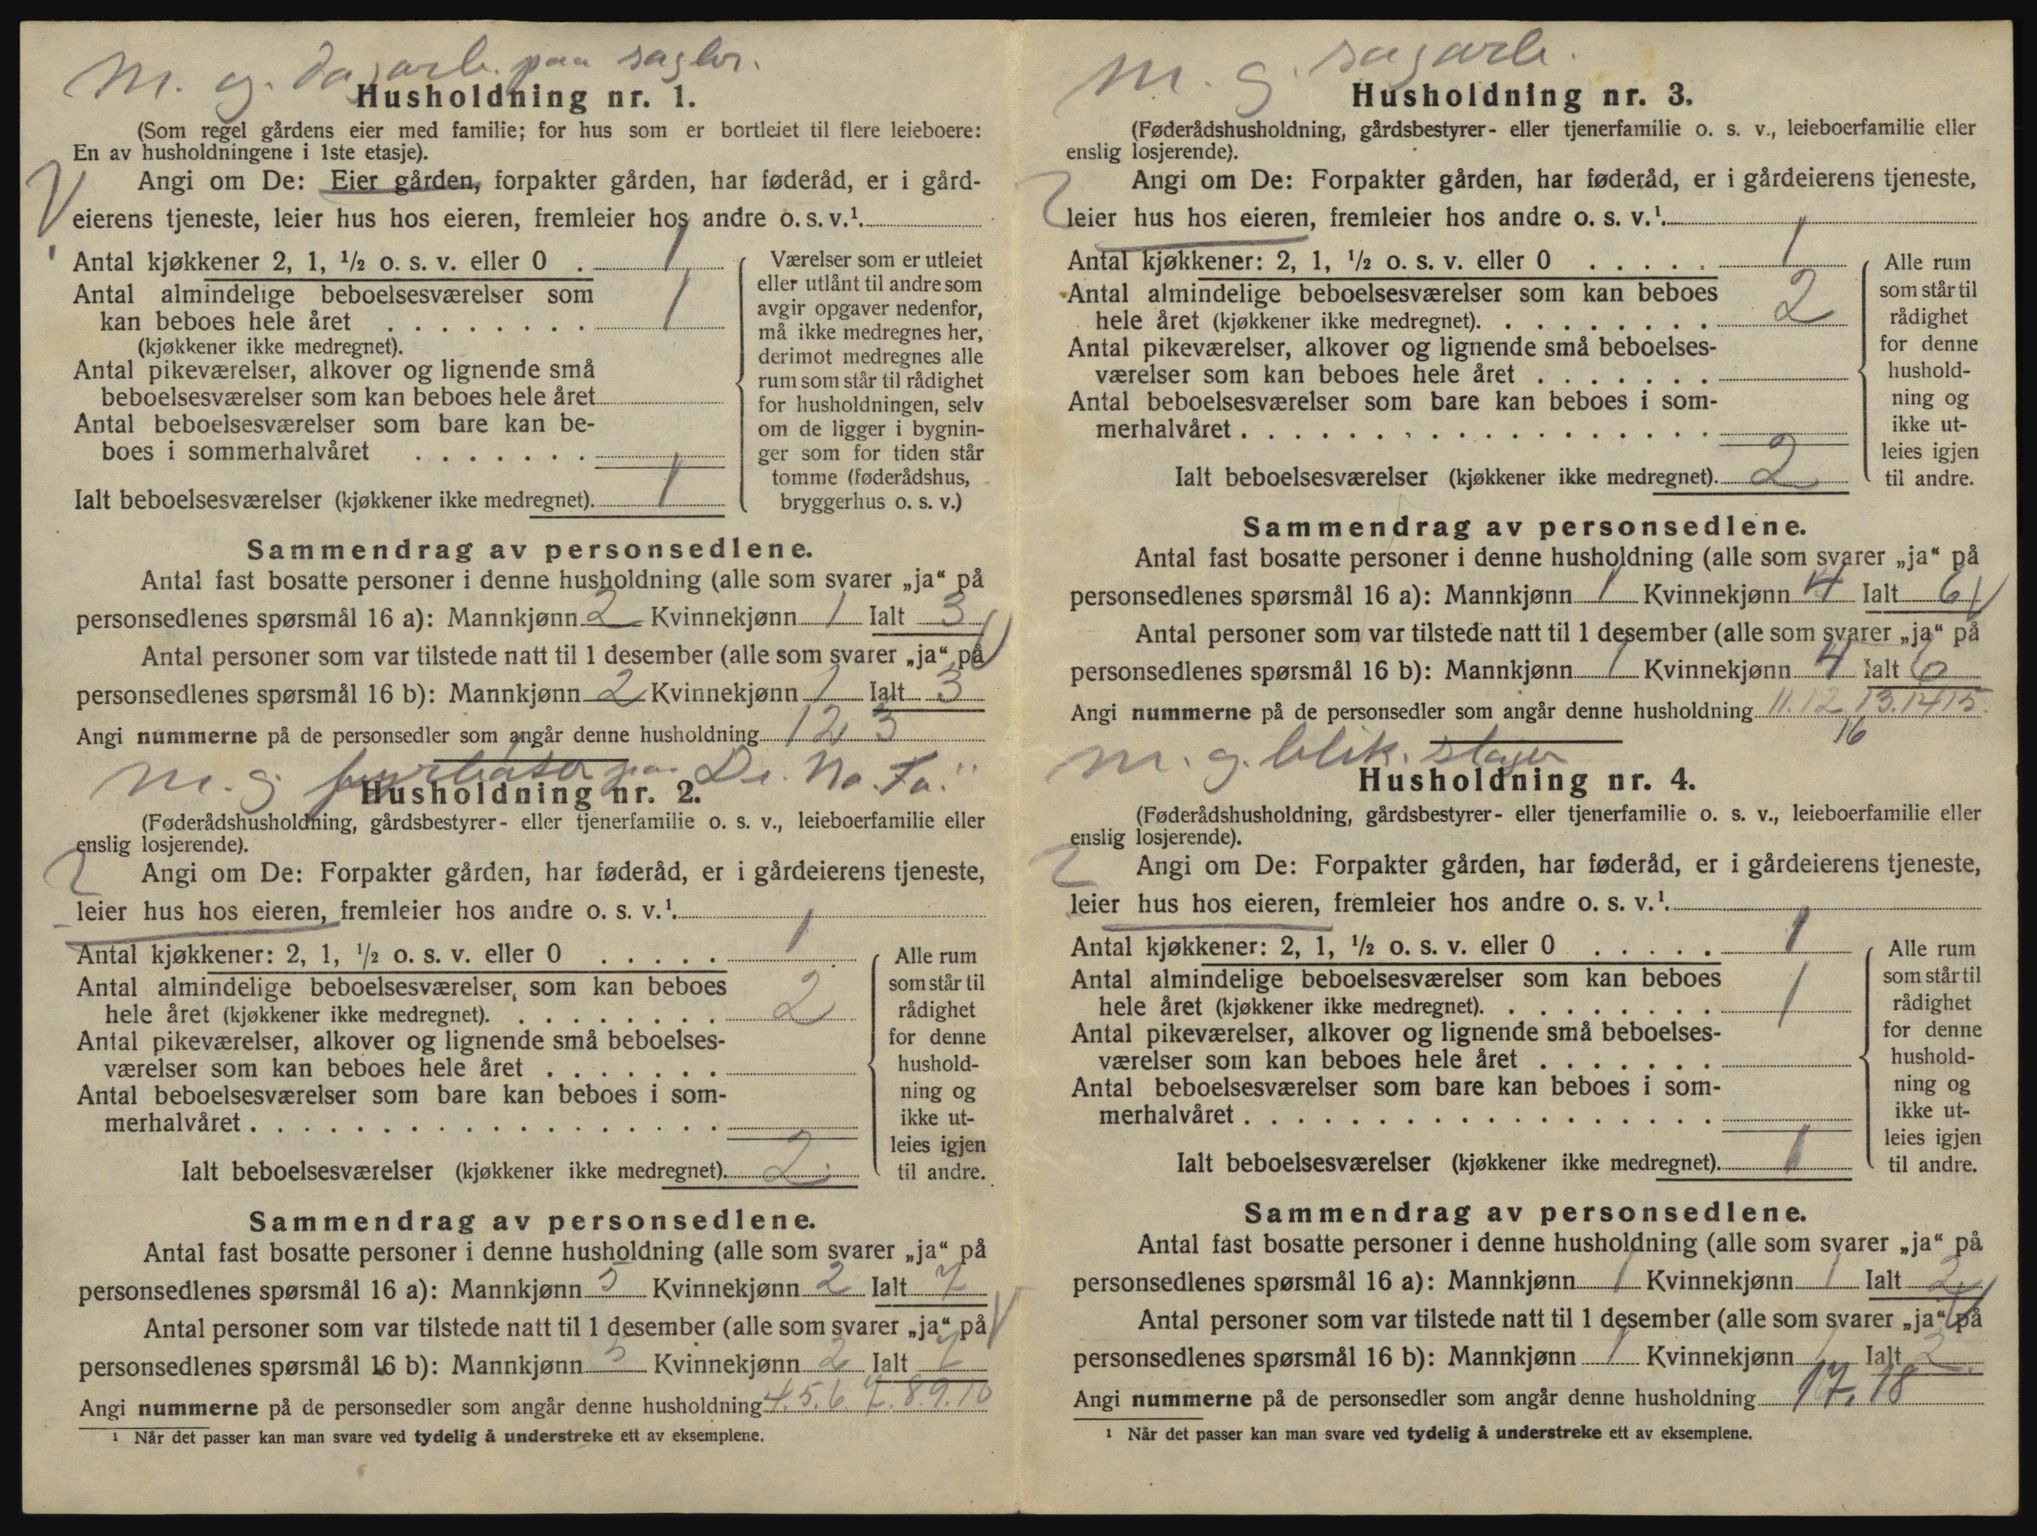 M. g. dagarb. paa sagbr.
Husholdning nr. 1.
(Som regel gårdens eier med familie; for hus som er bortleiet til flere leieboere:
En av husholdningene i 1ste etasje).
Angi om De: Eier gården, forpakter gården, har føderåd, er i gård-
eierens tjeneste, leier hus hos eieren, fremleier hos andre o. s. v.¹.
Antal kjøkkener 2, 1, ½ o. s. v. eller 0 . 1
Antal almindelige beboelsesværelser som
kan beboes hele året . . . . . . . . 1
(kjøkkener ikke medregnet).
Antal pikeværelser, alkover og lignende små
beboelsesværelser som kan beboes hele året
Antal beboelsesværelser som bare kan be-
boes i sommerhalvåret . . . . . . .
Ialt beboelsesværelser (kjøkkener ikke medregnet). 1
Værelser som er utleiet
eller utlånt til andre som
avgir opgaver nedenfor,
må ikke medregnes her,
derimot medregnes alle
rum som står til rådighet
for husholdningen, selv
om de ligger i bygnin-
ger som for tiden står
tomme (føderådshus,
bryggerhus o. s. v.)
Sammendrag av personsedlene.
Antal fast bosatte personer i denne husholdning (alle som svarer „ja“ på
personsedlenes spørsmål 16 a): Mannkjønn 2 Kvinnekjønn 1 Ialt 3
Antal personer som var tilstede natt til 1 desember (alle som svarer „ja“ på
personsedlenes spørsmål 16 b): Mannkjønn 2 Kvinnekjønn 1 Ialt 3
Angi nummerne på de personsedler som angår denne husholdning 1 2 3
M. g. fyrbøter paa De. No. Fa.
Husholdning nr. 2.
(Føderådshusholdning, gårdsbestyrer- eller tjenerfamilie o. s. v., leieboerfamilie eller
enslig losjerende).
Angi om De: Forpakter gården, har føderåd, er i gårdeierens tjeneste,
leier hus hos eieren, fremleier hos andre o. s. v.¹.
Antal kjøkkener: 2, 1, ½ o. s. v. eller 0 . . . . . 1
Antal almindelige beboelsesværelser som kan beboes
hele året (kjøkkener ikke medregnet). . . . . . . . . 2
Antal pikeværelser, alkover og lignende små beboelses-
værelser som kan beboes hele året . . . . . . .
Antal beboelsesværelser som bare kan beboes i som-
merhalvåret . . . . . . . . . . . . . . . . . . .
Ialt beboelsesværelser (kjøkkener ikke medregnet). 2
Alle rum
som står til
rådighet
for denne
hushold-
ning og
ikke ut-
leies igjen
til andre.
Sammendrag av personsedlene.
Antal fast bosatte personer i denne husholdning (alle som svarer „ja“ på
personsedlenes spørsmål 16 a): Mannkjønn 5 Kvinnekjønn 2 Ialt 7
Antal personer som var tilstede natt til 1 desember (alle som svarer „ja“ på
personsedlenes spørsmål 16 b): Mannkjønn 5 Kvinnekjønn 2 Ialt 7
Angi nummerne på de personsedler som angår denne husholdning 4.5.6.7.8.9.10
¹ Når det passer kan man svare ved tydelig å understreke ett av eksemplene.
M. g. sagarb.
Husholdning nr. 3.
(Føderådshusholdning, gårdsbestyrer- eller tjenerfamilie o. s. v., leieboerfamilie eller
enslig losjerende).
Angi om De: Forpakter gården, har føderåd, er i gårdeierens tjeneste,
leier hus hos eieren, fremleier hos andre o. s. v.¹.
Antal kjøkkener: 2, 1, ½ o. s. v. eller 0 . . . . . 1
Antal almindelige beboelsesværelser som kan beboes
hele året (kjøkkener ikke medregnet). . . . . . . . . 2
Antal pikeværelser, alkover og lignende små beboelses-
værelser som kan beboes hele året . . . . . . .
Antal beboelsesværelser som bare kan beboes i som-
merhalvåret . . . . . . . . . . . . . . . . . . .
Ialt beboelsesværelser (kjøkkener ikke medregnet). 2
Alle rum
som står til
rådighet
for denne
hushold-
ning og
ikke ut-
leies igjen
til andre.
Sammendrag av personsedlene.
Antal fast bosatte personer i denne husholdning (alle som svarer „ja“ på
personsedlenes spørsmål 16 a): Mannkjønn 1 Kvinnekjønn 4 Ialt 6
Antal personer som var tilstede natt til 1 desember (alle som svarer „ja“ på
personsedlenes spørsmål 16 b): Mannkjønn 1 Kvinnekjønn 4 Ialt 6
Angi nummerne på de personsedler som angår denne husholdning 11.12.13.14 15.
16
M. g. blik. slager
Husholdning nr. 4.
(Føderådshusholdning, gårdsbestyrer- eller tjenerfamilie o. s. v., leieboerfamilie eller
enslig losjerende).
Angi om De: Forpakter gården, har føderåd, er i gårdeierens tjeneste,
leier hus hos eieren, fremleier hos andre o. s. v.¹.
Antal kjøkkener: 2, 1, ½ o. s. v. eller 0 . . . . . 1
Antal almindelige beboelsesværelser som kan beboes
hele året (kjøkkener ikke medregnet). . . . . . . . . 1
Antal pikeværelser, alkover og lignende små beboelses-
værelser som kan beboes hele året . . . . . . .
Antal beboelsesværelser som bare kan beboes i som-
merhalvåret . . . . . . . . . . . . . . . . . . .
Ialt beboelsesværelser (kjøkkener ikke medregnet). 1
Alle rum
som står til
rådighet
for denne
hushold-
ning og
ikke ut-
leies igjen
til andre.
Sammendrag av personsedlene.
Antal fast bosatte personer i denne husholdning (alle som svarer „ja“ på
personsedlenes spørsmål 16 a): Mannkjønn 1 Kvinnekjønn 1 Ialt 2
Antal personer som var tilstede natt til 1 desember (alle som svarer „ja“ på
personsedlenes spørsmål 16 b): Mannkjønn 1 Kvinnekjønn 1 Ialt 2.
Angi nummerne på de personsedler som angår denne husholdning 17. 18
¹ Når det passer kan man svare ved tydelig å understreke ett av eksemplene.